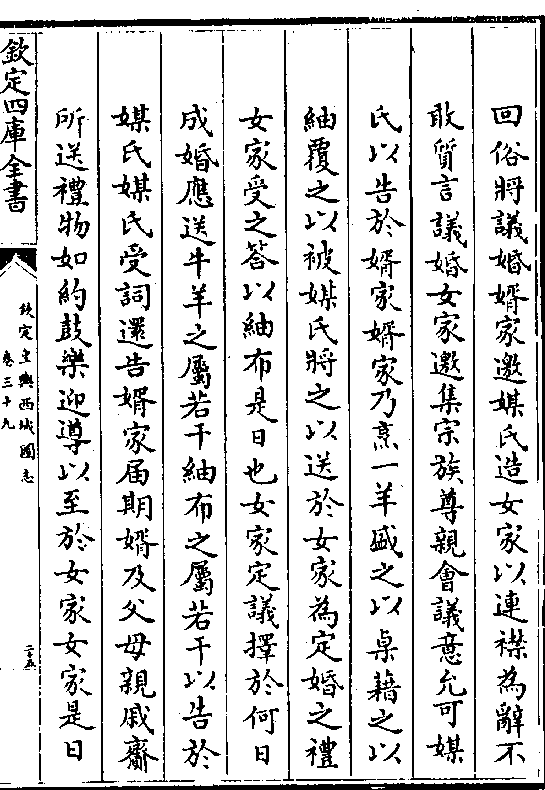 回俗將議婚婿家邀媒氏造女家以連襟為辭不
敢質言議婚女家邀集宗族尊親會議意允可媒
氏以告於婿家婿家乃烹一羊盛之以桌藉之以
紬覆之以被媒氏將之以送於女家為定婚之禮
女家受之答以紬布是日也女家定議擇於何日
成婚應送牛羊之屬若干紬布之屬若干以告於
媒氏媒氏受詞還告婿家届期婿及父母親戚齎
所送禮物如約鼓樂迎導以至於女家女家是日
欽定四庫全書
欽定皇輿西域圖志
卷三十九
二十五